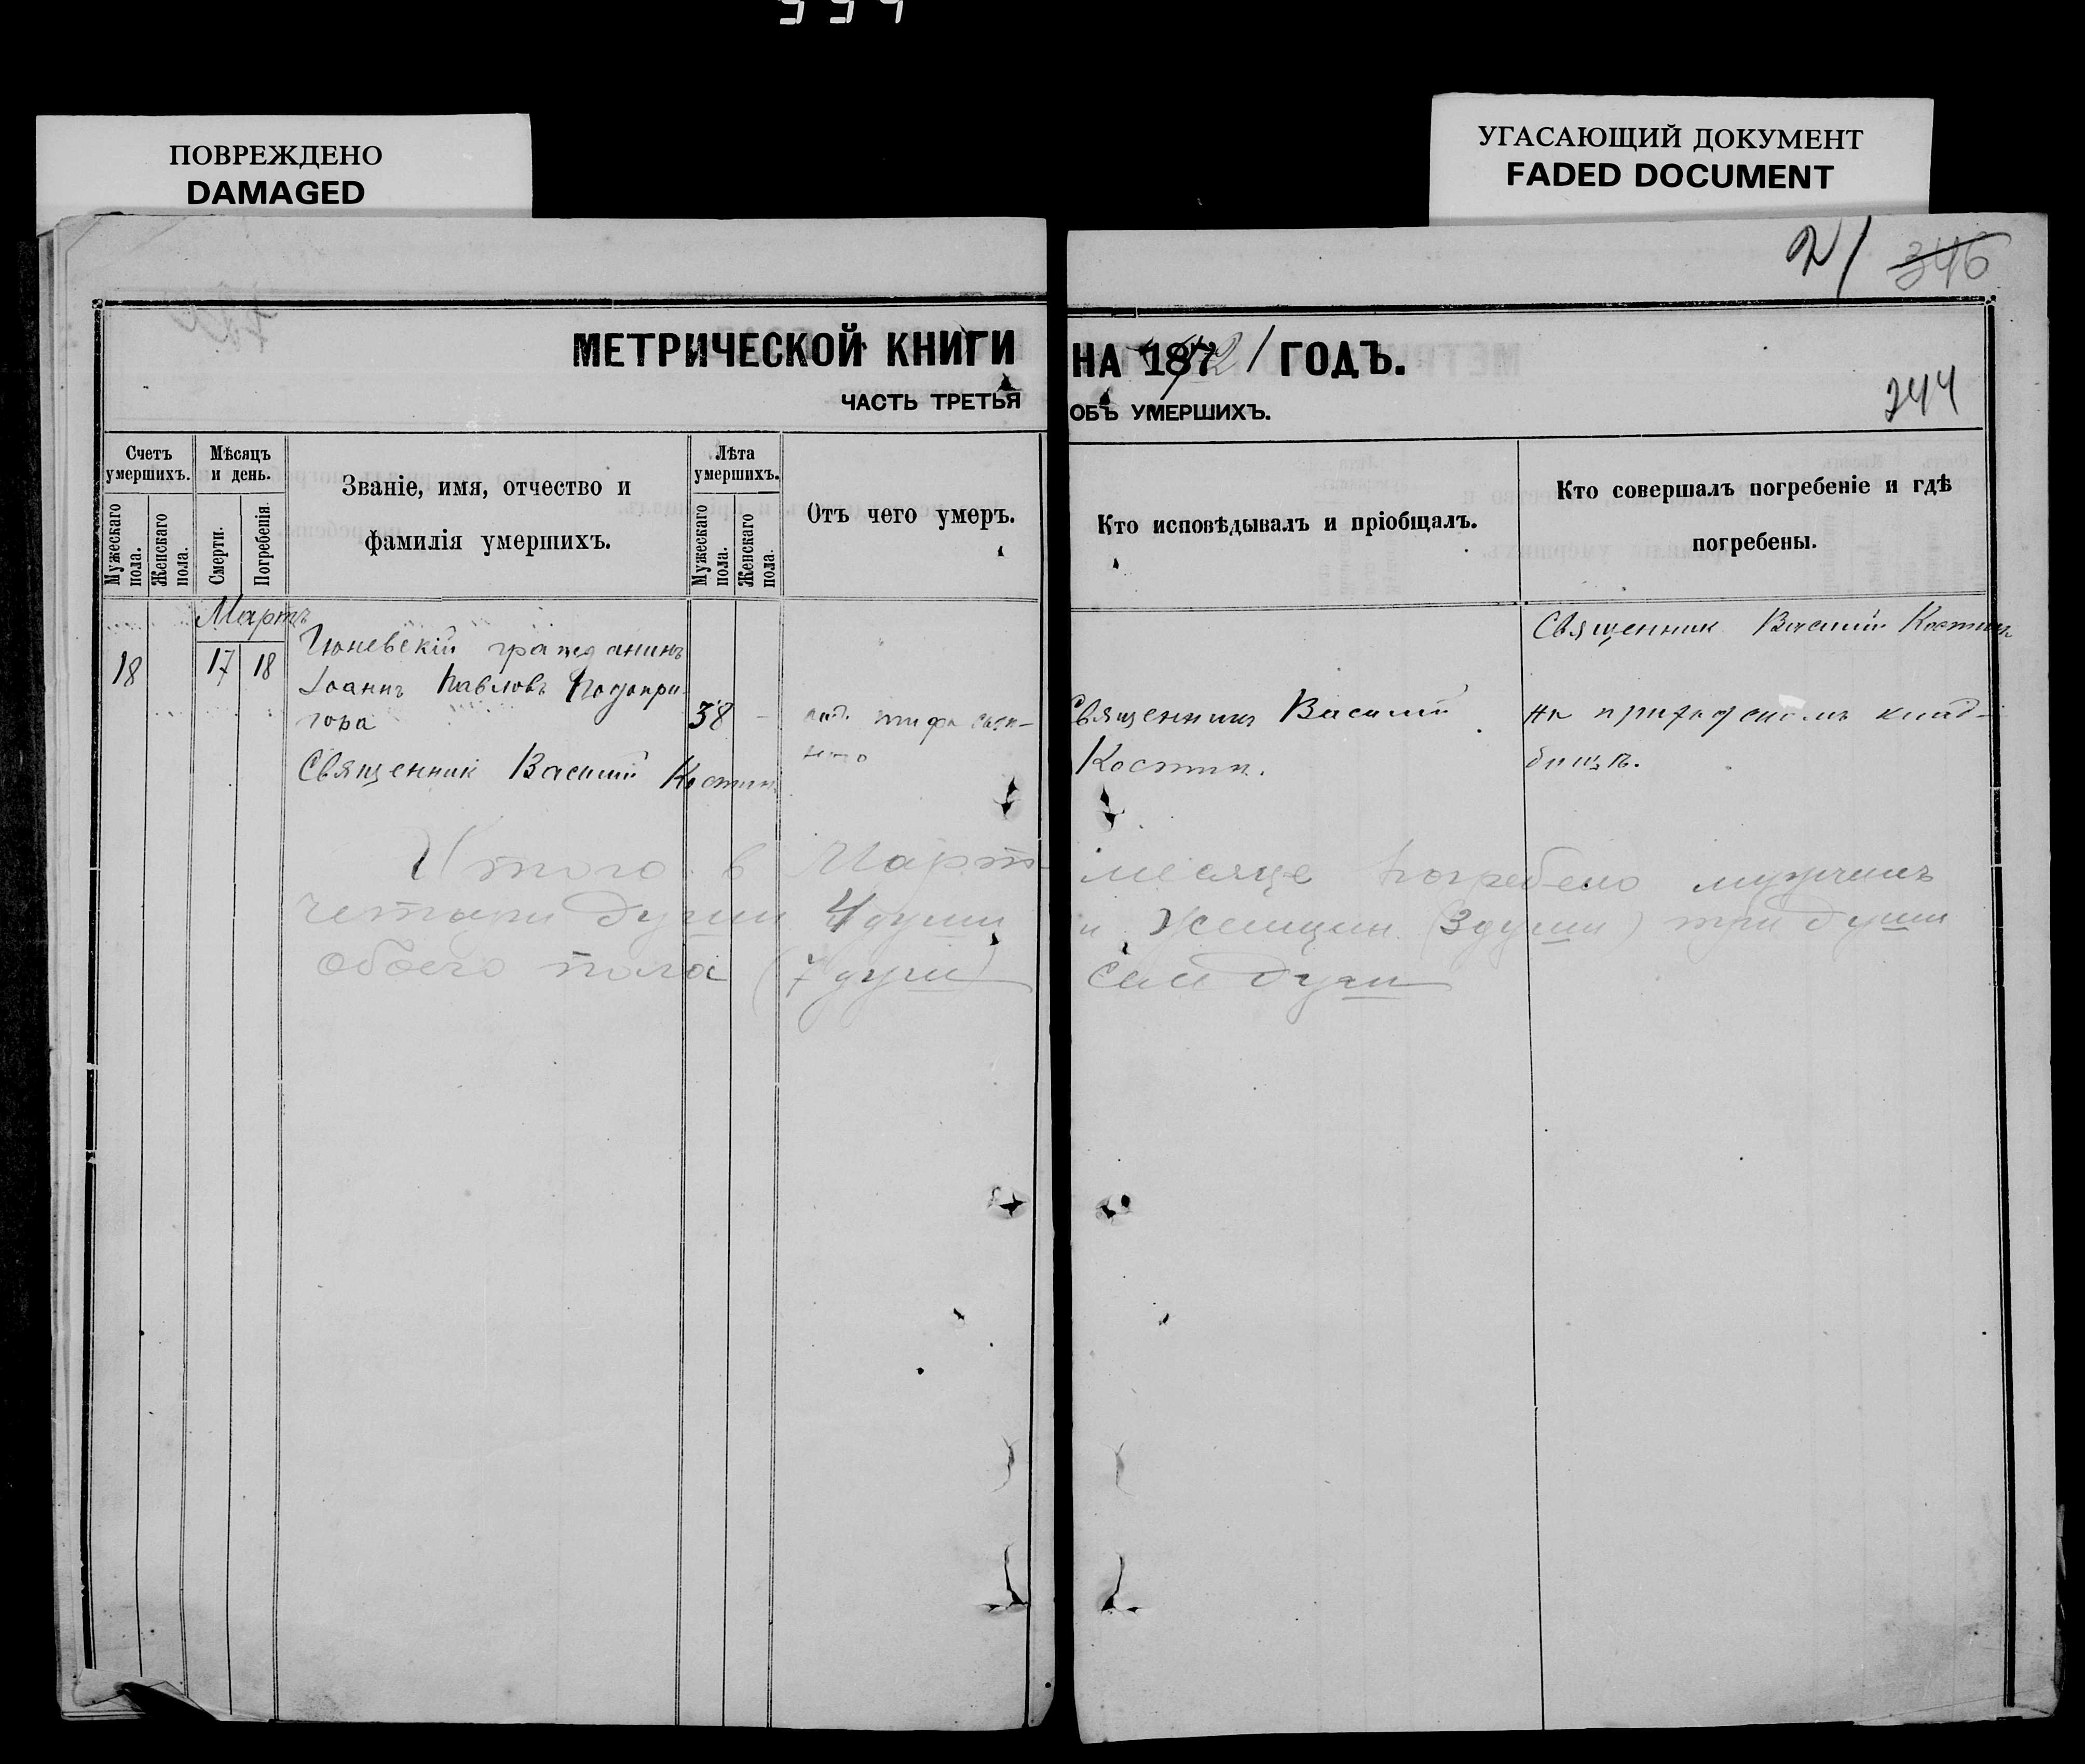 ПОВРЕЖДЕНО
DAMAGED
УГАСАЮЩИЙ ДОКУМЕНТ
FADED DOCUMENT
21 346
МЕТРИЧЕСКОЙ КНИГИ НА 1921 ГОДЪ.
ЧАСТЬ ТРЕТЬЯ ОБЪ УМЕРШИХЪ.
244
Счетъ умершихъ.
Мужескаго пола.
Женскаго пола.
Мѣсяцъ и день.
Смерти.
Погребенія.
Званіе, имя, отчество и
фамилія умершихъ.
Лѣта умершихъ.
Мужескаго пола.
Женскаго пола.
Отъ чего умеръ.
Кто исповѣдывалъ и пріобщалъ.
Кто совершалъ погребеніе и гдѣ
погребены.
Мартъ
18 17 18
гражданинъ
Іоаннъ Павловъ Подопри-
гора
38
тифа
Священникъ Василій
Костин.
Священник Василій Костин
на приходскомъ клад-
бищѣ.
Священник Василий Костин
Итого в Март месяце погребено мужчинъ
четыри души 4 души и Женщин (3 души) три души
Обоего пола (7 душ) сем душ